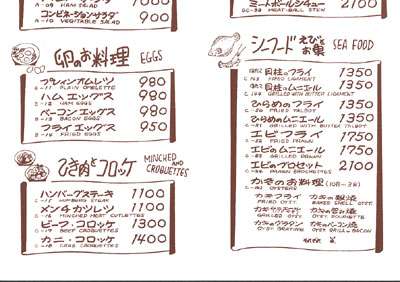 A-09 HAM SALAD 1000
コンビネーションサラダ 900
A-10 VEGETABLE SALAD
卵のお料理 EGGS
プレーンオムレツ 980
B-11 PLAIN OMELETTE
ハムエッグス 980
B-12 HAM EGGS
ベーコンエッグス 980
B-13 BACON EGGS
フライエッグス 950
B-14 FRIED EGGS
ひき肉とコロッケ MINCHED AND CROQUETTES
ハンバーグステーキ 1100
C-15 HUMBURG STEAK
メンチカツレツ 1100
C-16 MINCHED MEAT CUTLETTES
ビーフ・コロッケ 1300
C-17 BEEF CROQUETTES
カニ・コロッケ 1400
C-18 CRAB CROQUETTES
ミートボールシチュー 2100
BC-38 MEAT-BALL STEW
シーフード えびとお魚 SEA FOOD
貝柱のフライ 1350
FRIED LIGAMENT
貝柱のムニエル 1350
GRILLED WITH BUTTER LIGAMENT
ひらめのフライ 1350
FRIED TALBOT
ひらめのムニエル 1350
GRILLED WITH BUTTER TALBOT
エビフライ 1750
FRIED PRAWN
エビのムニエル 1750
GRILLED PRAWN
エビのグロセット 2100
PRAWN BROCHETTES
かきのお料理 (10月〜3月)
OYSTERS
カキフライ
FRIED OYST.
カキの殻焼
BAKED SHELL OYST.
GRILLED OYST.
カキの包み焼
カキグラタン
OYST GRATING
カキのベーコン焼
OYST GRILL BACON